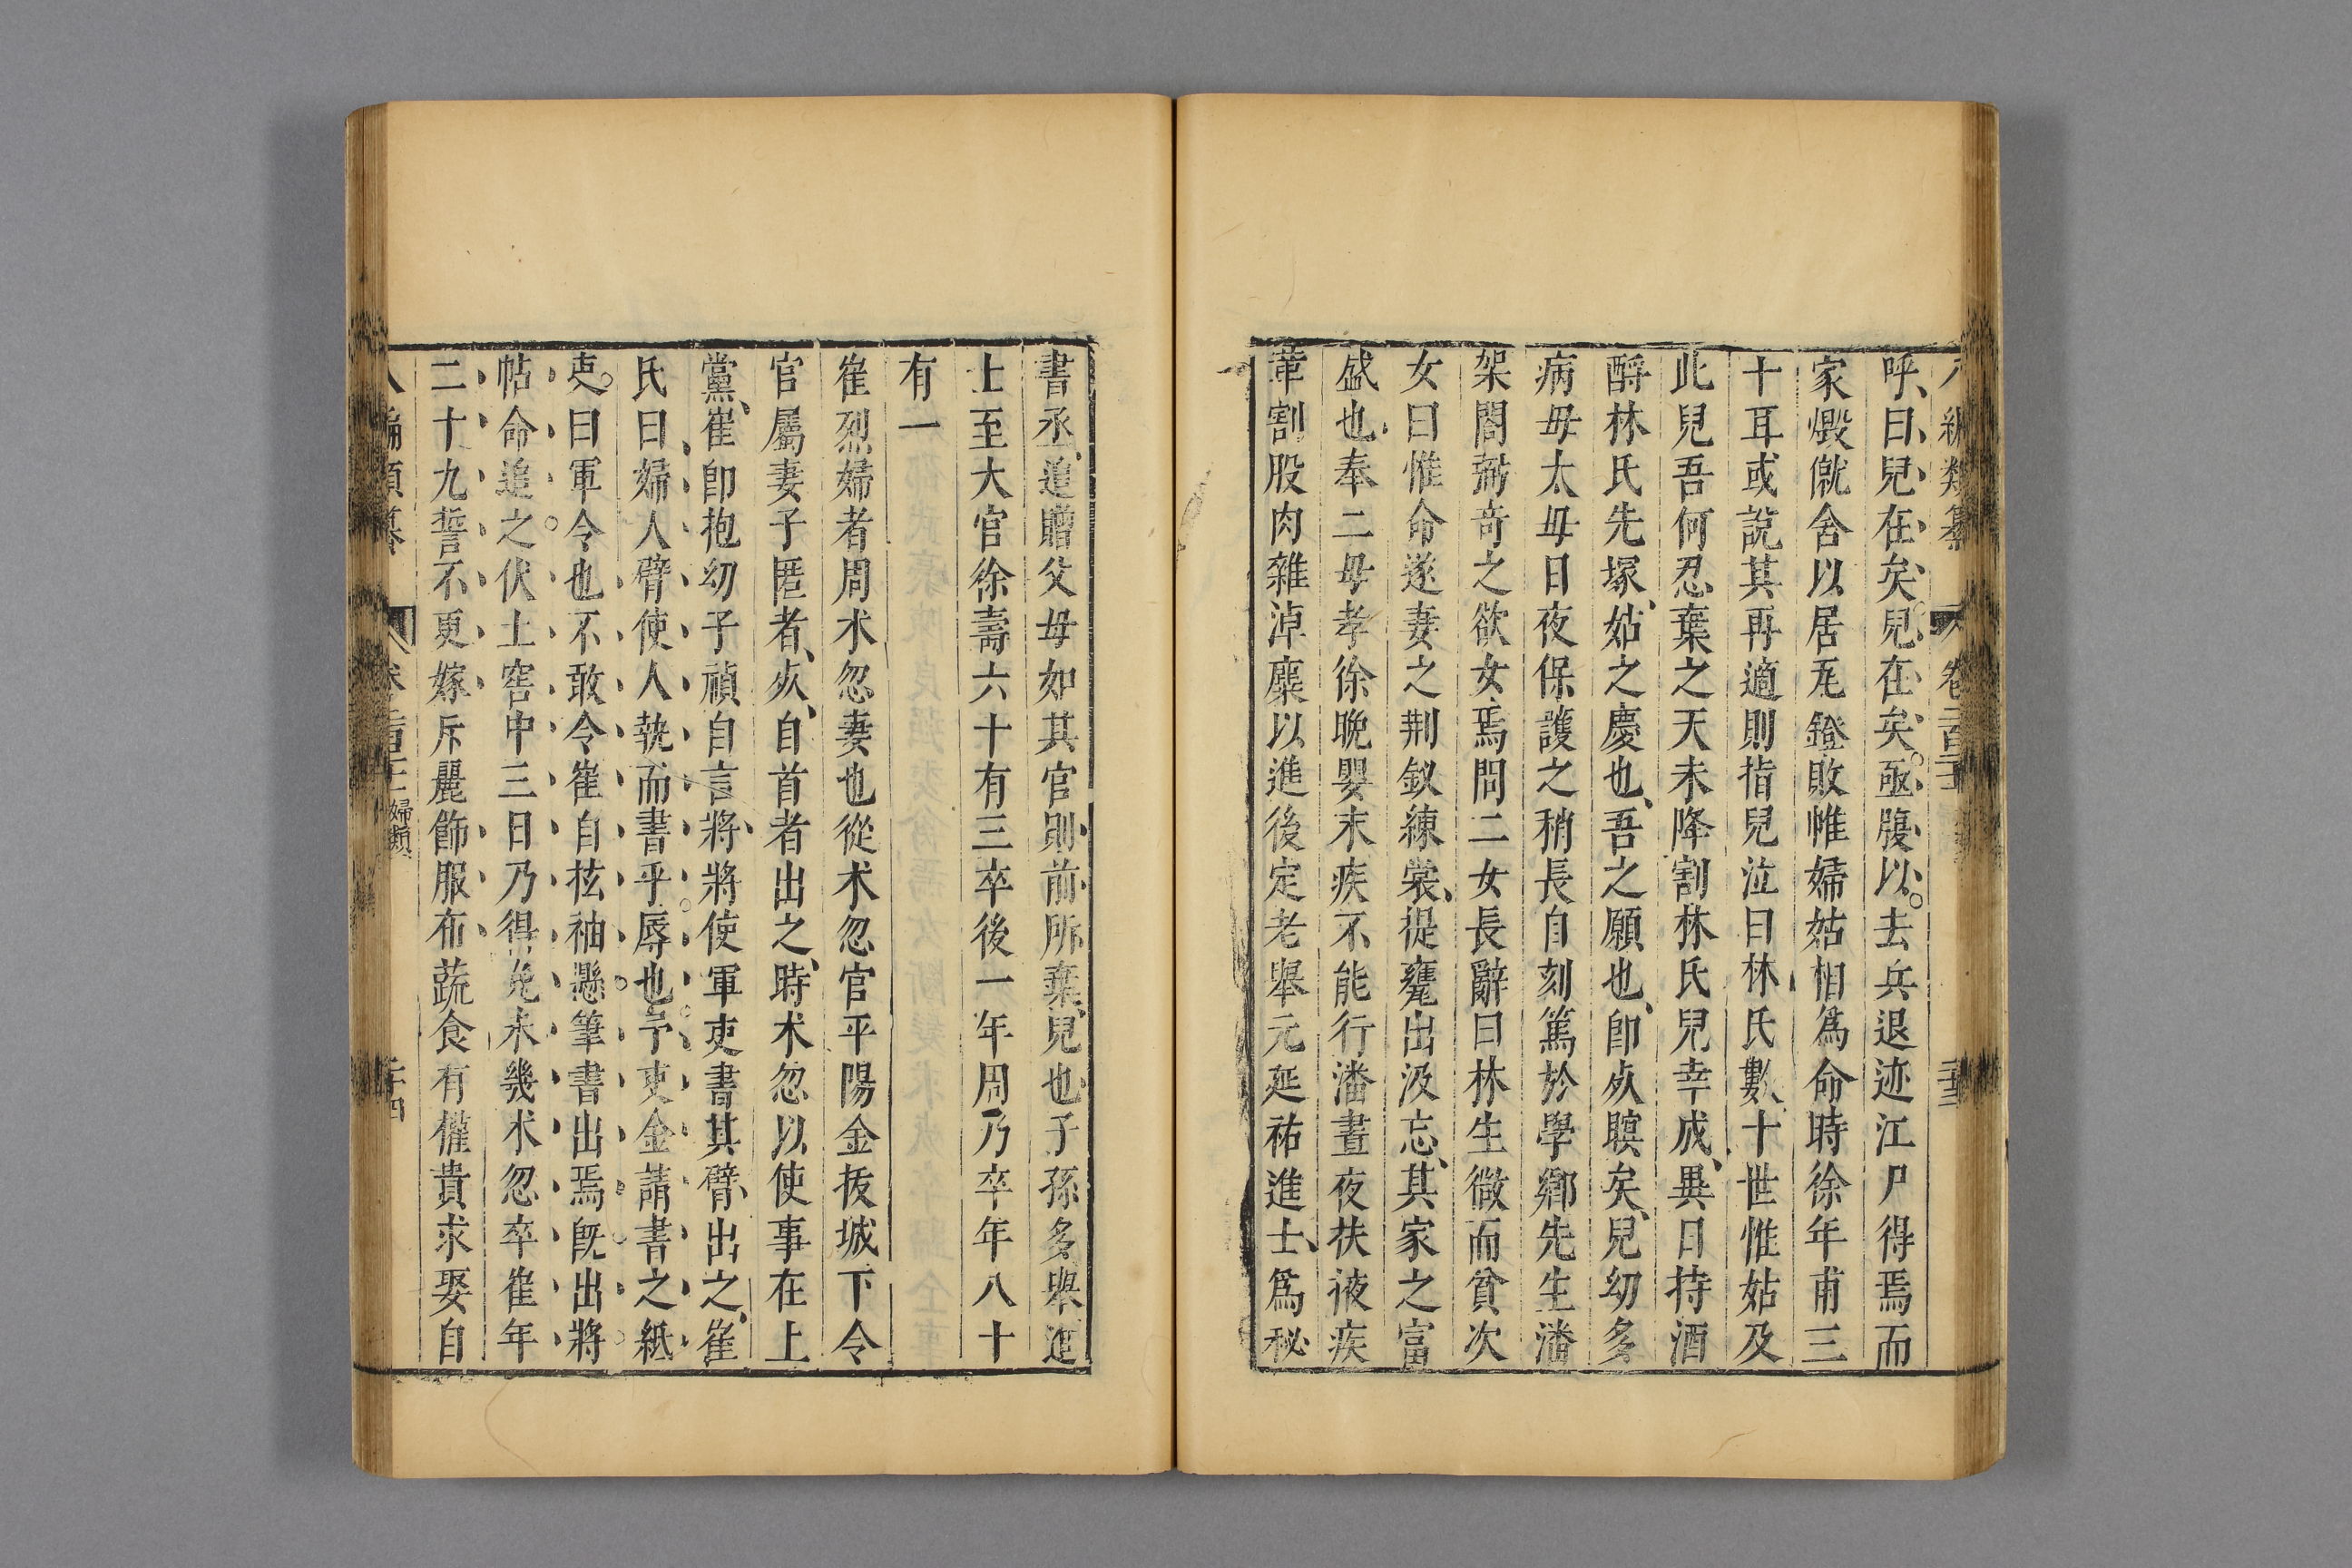 八編類纂 卷二百三十 三十三
呼曰兒在矣兒在矣亟腹以去兵退迹江尸得焉而
家燬僦舍以居瓦鐙敗帷婦姑相爲命時徐年甫三
十耳或說其再適則指兒泣曰林氏數十世惟姑及
此兒吾何忍棄之天未降割林氏兒幸成異日持酒
酹林氏先塚姑之慶也吾之願也卽死瞑矣兒幼多
病毋太毋日夜保護之稍長自刻篤於學鄉先生潘
架閣蒜竒之欲女焉問二女長辭曰林生微而貧次
女曰惟命遂妻之荆釵練裳提甕出汲忘其家之富
盛也奉二毋孝徐晩嬰末疾不能行潘晝夜扶掖疾
革割股肉雜淖糜以進後定老舉元延祐進士爲秘
書丞追贈父毋如其官則前所棄兒也子孫多舉進
士至大官徐壽六十有三卒後一年周乃卒年八十
有一
崔烈婦者周术忽妻也從术忽官平陽金拔城下令
官屬妻子匿者死自首者出之時术忽以使事在上
黨崔卽抱幼子禎自言將將使軍吏書其臂出之崔
氏曰婦人臂使人執而書乎辱也予吏金請書之紙
吏曰軍令也不敢令崔自袨袖懸筆書出焉旣出將
帖命追之伏土窖中三日乃得免未幾术忽卒崔年
二十九誓不更嫁斥麗飾服布蔬食有權貴求娶自
八編類纂 卷二百三十 婦類 三十四